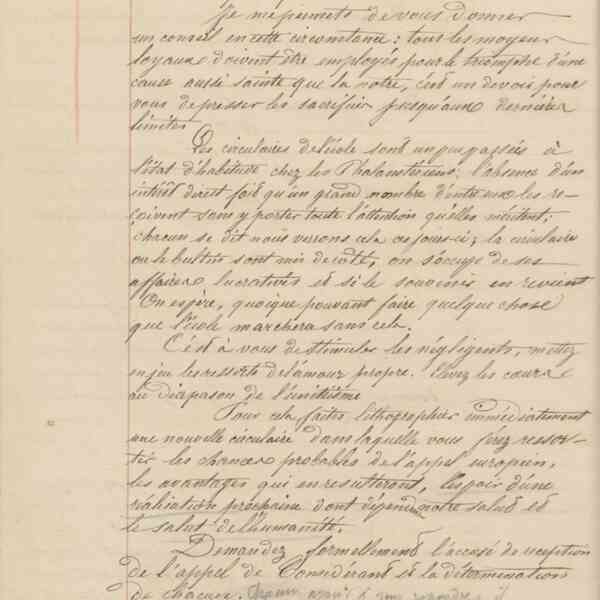 Je me permets de vous donner
un conseil en cette circonstance : tous les moyens
loyaux doivent être employés pour le triomphe d'une
cause aussi sainte que la notre, c'est un devoir pour
vous de presser les sacrifices jusqu'aux dernières
limites
Les circulaires de l'école sont un peu passées à
l'état d'habitude chez les Phalanstériens; l'absence d'un
intérêt direct fait qu'un grand nombre d'entre eux les re-
çoivent sans y porter toute l'attention qu'elles méritent;
chacun se dit nous verrons cela ces jours-ci; la circulaire
ou le bulletin sont mis de côté, on s'occupe de ses
affaires lucratives et si le souvenir en revient
on espère, quoique pouvant faire quelque chose
que l'école marchera sans cela.
C'est à vous de stimuler les négligents, mettez
en jeu les ressorts de l'amour propre. Elevez les cœurs
au diapason de l'unitéisme
Pour cela faites lithographier immédiatement
une nouvelle circulaire dans laquelle vous ferez ressor-
tir les chances probables de l'appel européen,
les avantages qui en resulteront, l'espoir d'une
réalisation prochaine dont dépend notre salut et
le salut de l'humanité.
Demandez formellement l'accusé de reception
de l'appel de Considérant et la détermination
de chacun.